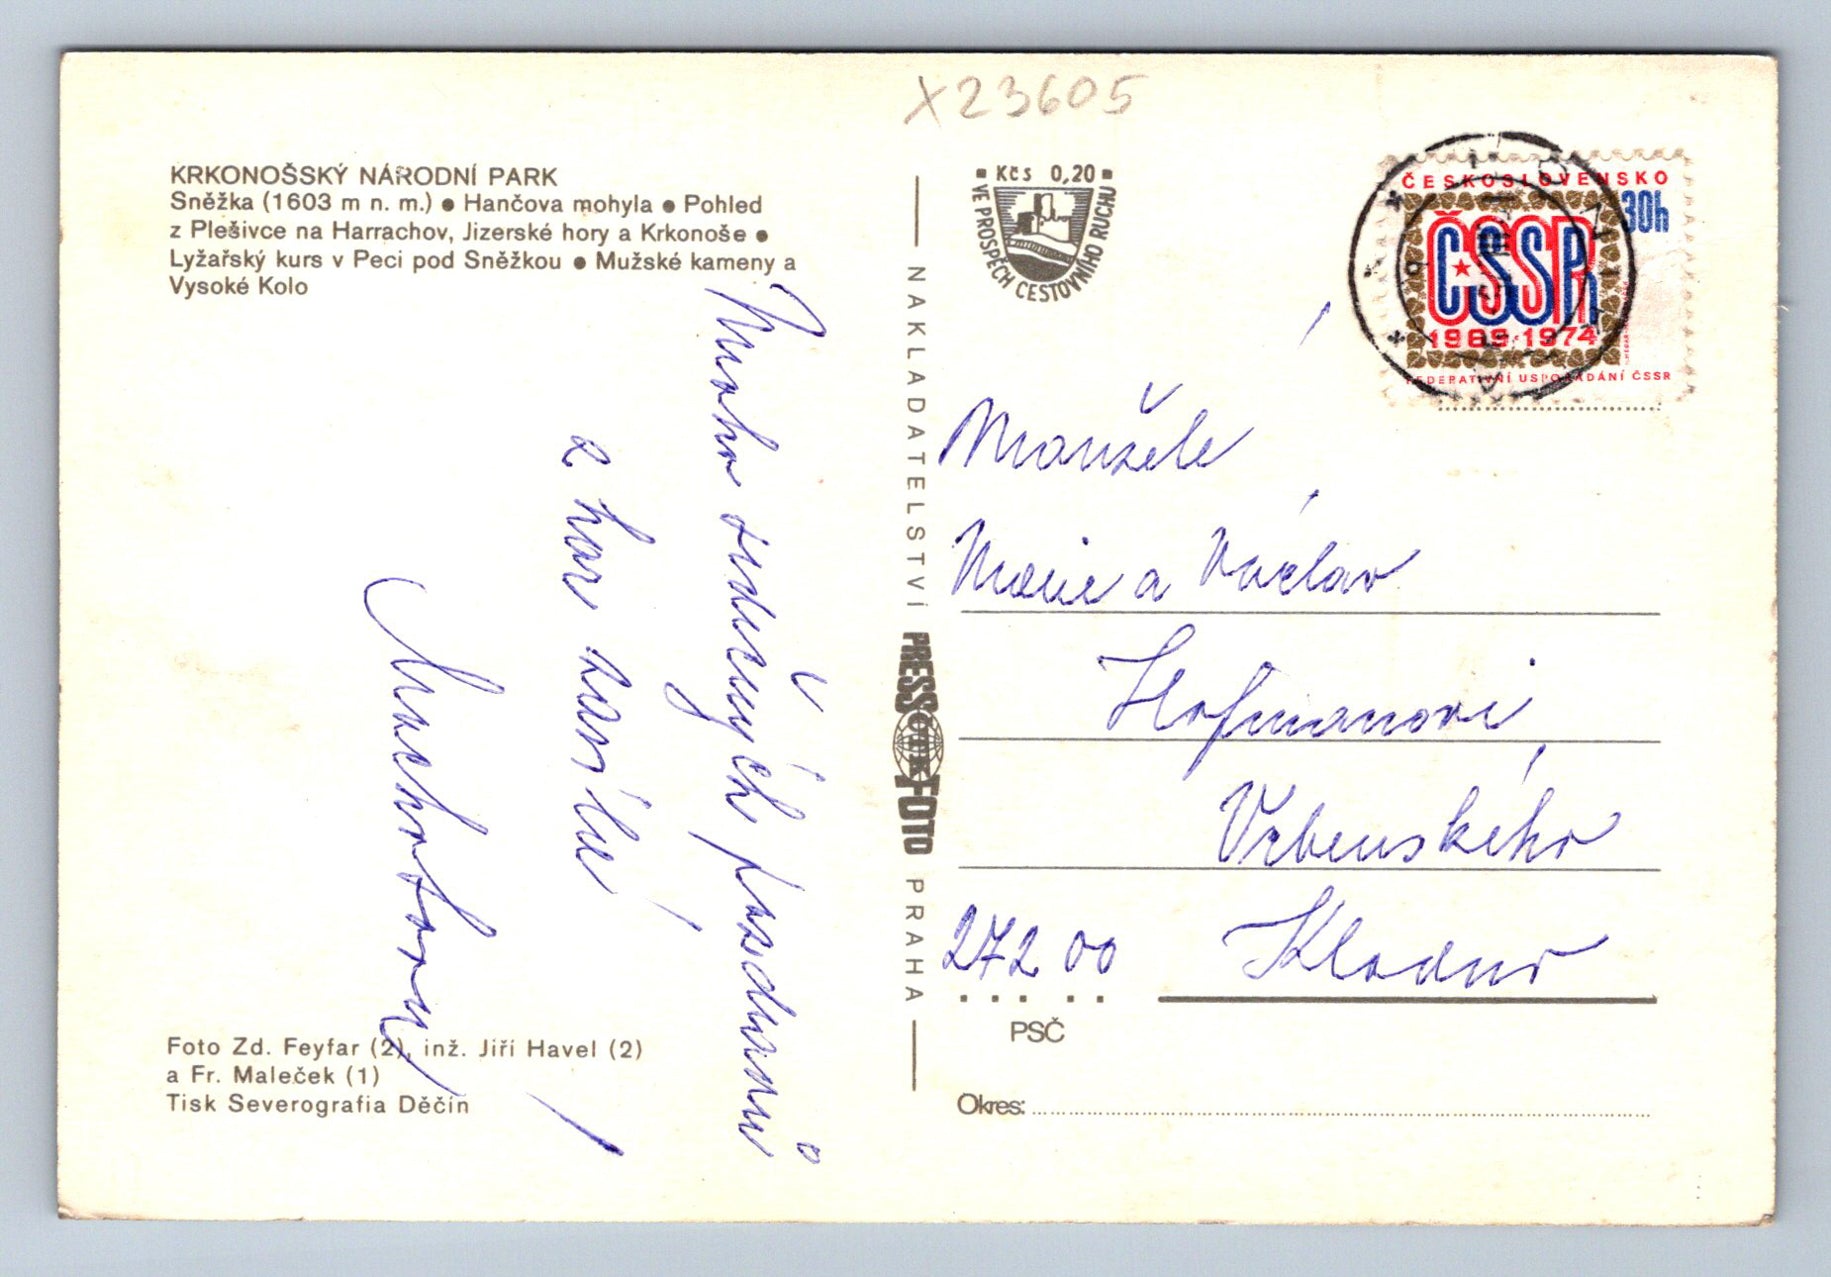 X23605
KRKONOŠSKÝ NÁRODNÍ PARK
Sněžka (1603 m n. m.) ● Hančova mohyla ● Pohled
z Plešivce na Harrachov, Jizerské hory a Krkonoše ●
Lyžařský kurs v Peci pod Sněžkou ● Mužské kameny a
Vysoké Kolo
Mnoho srdečných pozdravů
z hor zasílá
Foto Zd. Feyfar (2), inž. Jiří Havel (2)
a Fr. Maleček (1)
Tisk Severografia Děčín
NAKLADATELSTVÍ PRESSFOTO PRAHA
ČTK
Kčs 0,20
VE PROSPĚCH CESTOVNÍHO RUCHU
ČESKOSLOVENSKO
30h
ČSSR
1969·1974
FEDERATIVNÍ USPOŘÁDÁNÍ ČSSR
Manželé
Marie a Václav
Hofmanovi
Vrbenského
272 00 Kladno
PSČ
Okres: